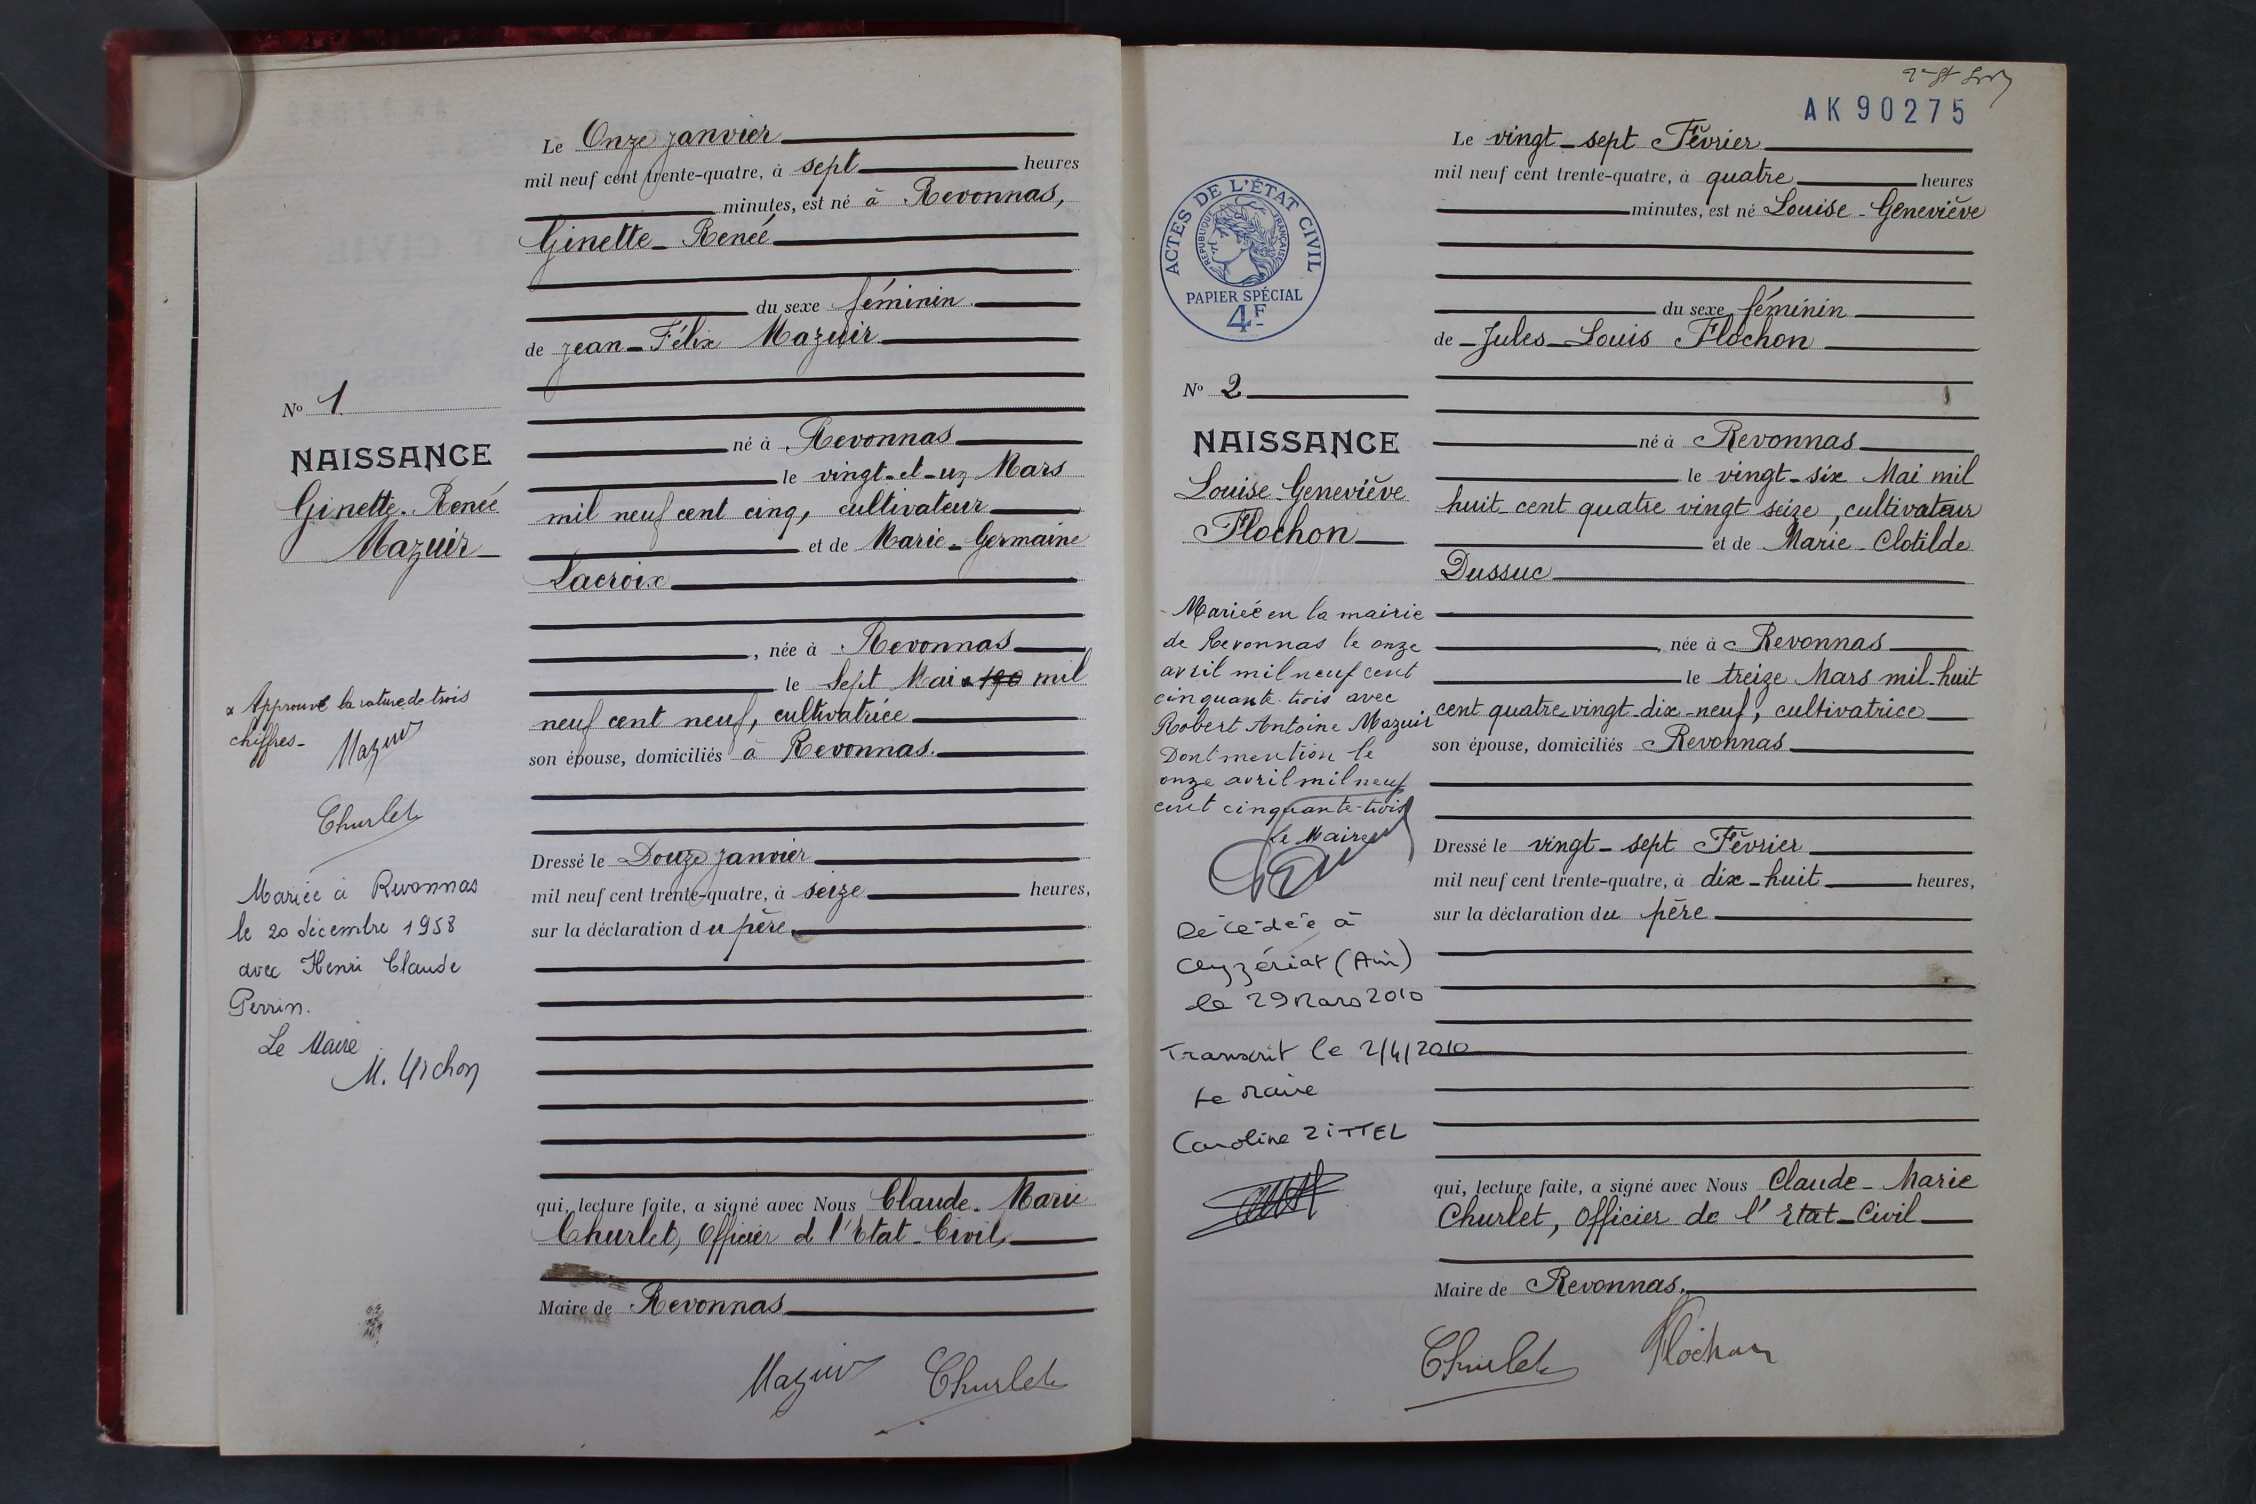 Le Onze janvier
mil neuf cent trente-quatre, à sept heures
minutes, est né à Revonnas,
Ginette - Renée
du sexe féminin
de jean - Félix Mazuir
né à Revonnas
le vingt-et-un Mars
mil neuf cent cinq, cultivateur
et de Marie - Germaine
Lacroix
, née à Revonnas
le Sept Mai x 190 mil
neuf cent neuf, cultivatrice
son épouse, domiciliés à Revonnas.
Dressé le Douze janvier
mil neuf cent trente-quatre, à seize heures,
sur la déclaration du père
qui, lecture faite, a signé avec Nous Claude - Marie
Churlet, Officier d l'Etat - Civil
Maire de Revonnas
Mazuir Churlet
No 1
NAISSANCE
Ginette - Renée
Mazuir
x Approuvé la rature de trois
chiffres -
Mazuir
Churlet
Mariée à Revonnas
le 20 décembre 1958
avec Henri Claude
Perrin.
Le Maire
M. Michon
AK 90275
Le vingt - sept Février
mil neuf cent trente-quatre, à quatre heures
minutes, est né Louise - Geneviève
du sexe féminin
de - Jules - Louis Flochon
né à Revonnas
le vingt - six Mai mil
huit cent quatre vingt seize, cultivateur
et de Marie - Clotilde
Dussuc
, née à Revonnas
le treize Mars mil huit
cent quatre-vingt-dix-neuf, cultivatrice
son épouse, domiciliés Revonnas
Dressé le vingt - sept Février
mil neuf cent trente-quatre, à dix - huit heures,
sur la déclaration du père
qui, lecture faite, a signé avec Nous Claude - Marie
Churlet, Officier de l'Etat - Civil
Maire de Revonnas.
Churlet Flochon
ACTES DE L'ÉTAT CIVIL
RÉPUBLIQUE FRANÇAISE
PAPIER SPÉCIAL
4F
No 2
NAISSANCE
Louise - Geneviève
Flochon
- Mariée en la mairie
de Revonnas le onze
avril mil neuf cent
cinquante-trois avec
Robert Antoine Mazuir
Dont mention le
onze avril mil neuf
cent cinquante-trois
Le Maire
Décédée à
Ceyzériat (Ain)
le 29 Mars 2010
Transcrit le 2/4/2010
Le Maire
Caroline ZITTEL